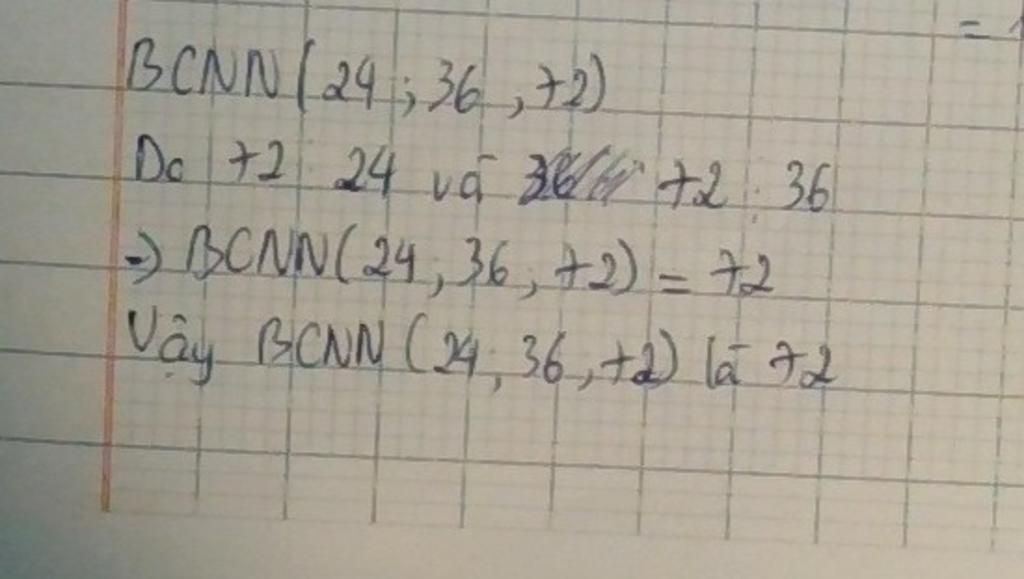 =
BCNN(24; 36, 72)
Do 72 ⋮ 24 và 72 ⋮ 36
=> BCNN(24, 36, 72) = 72
Vậy BCNN (24, 36, 72) là 72